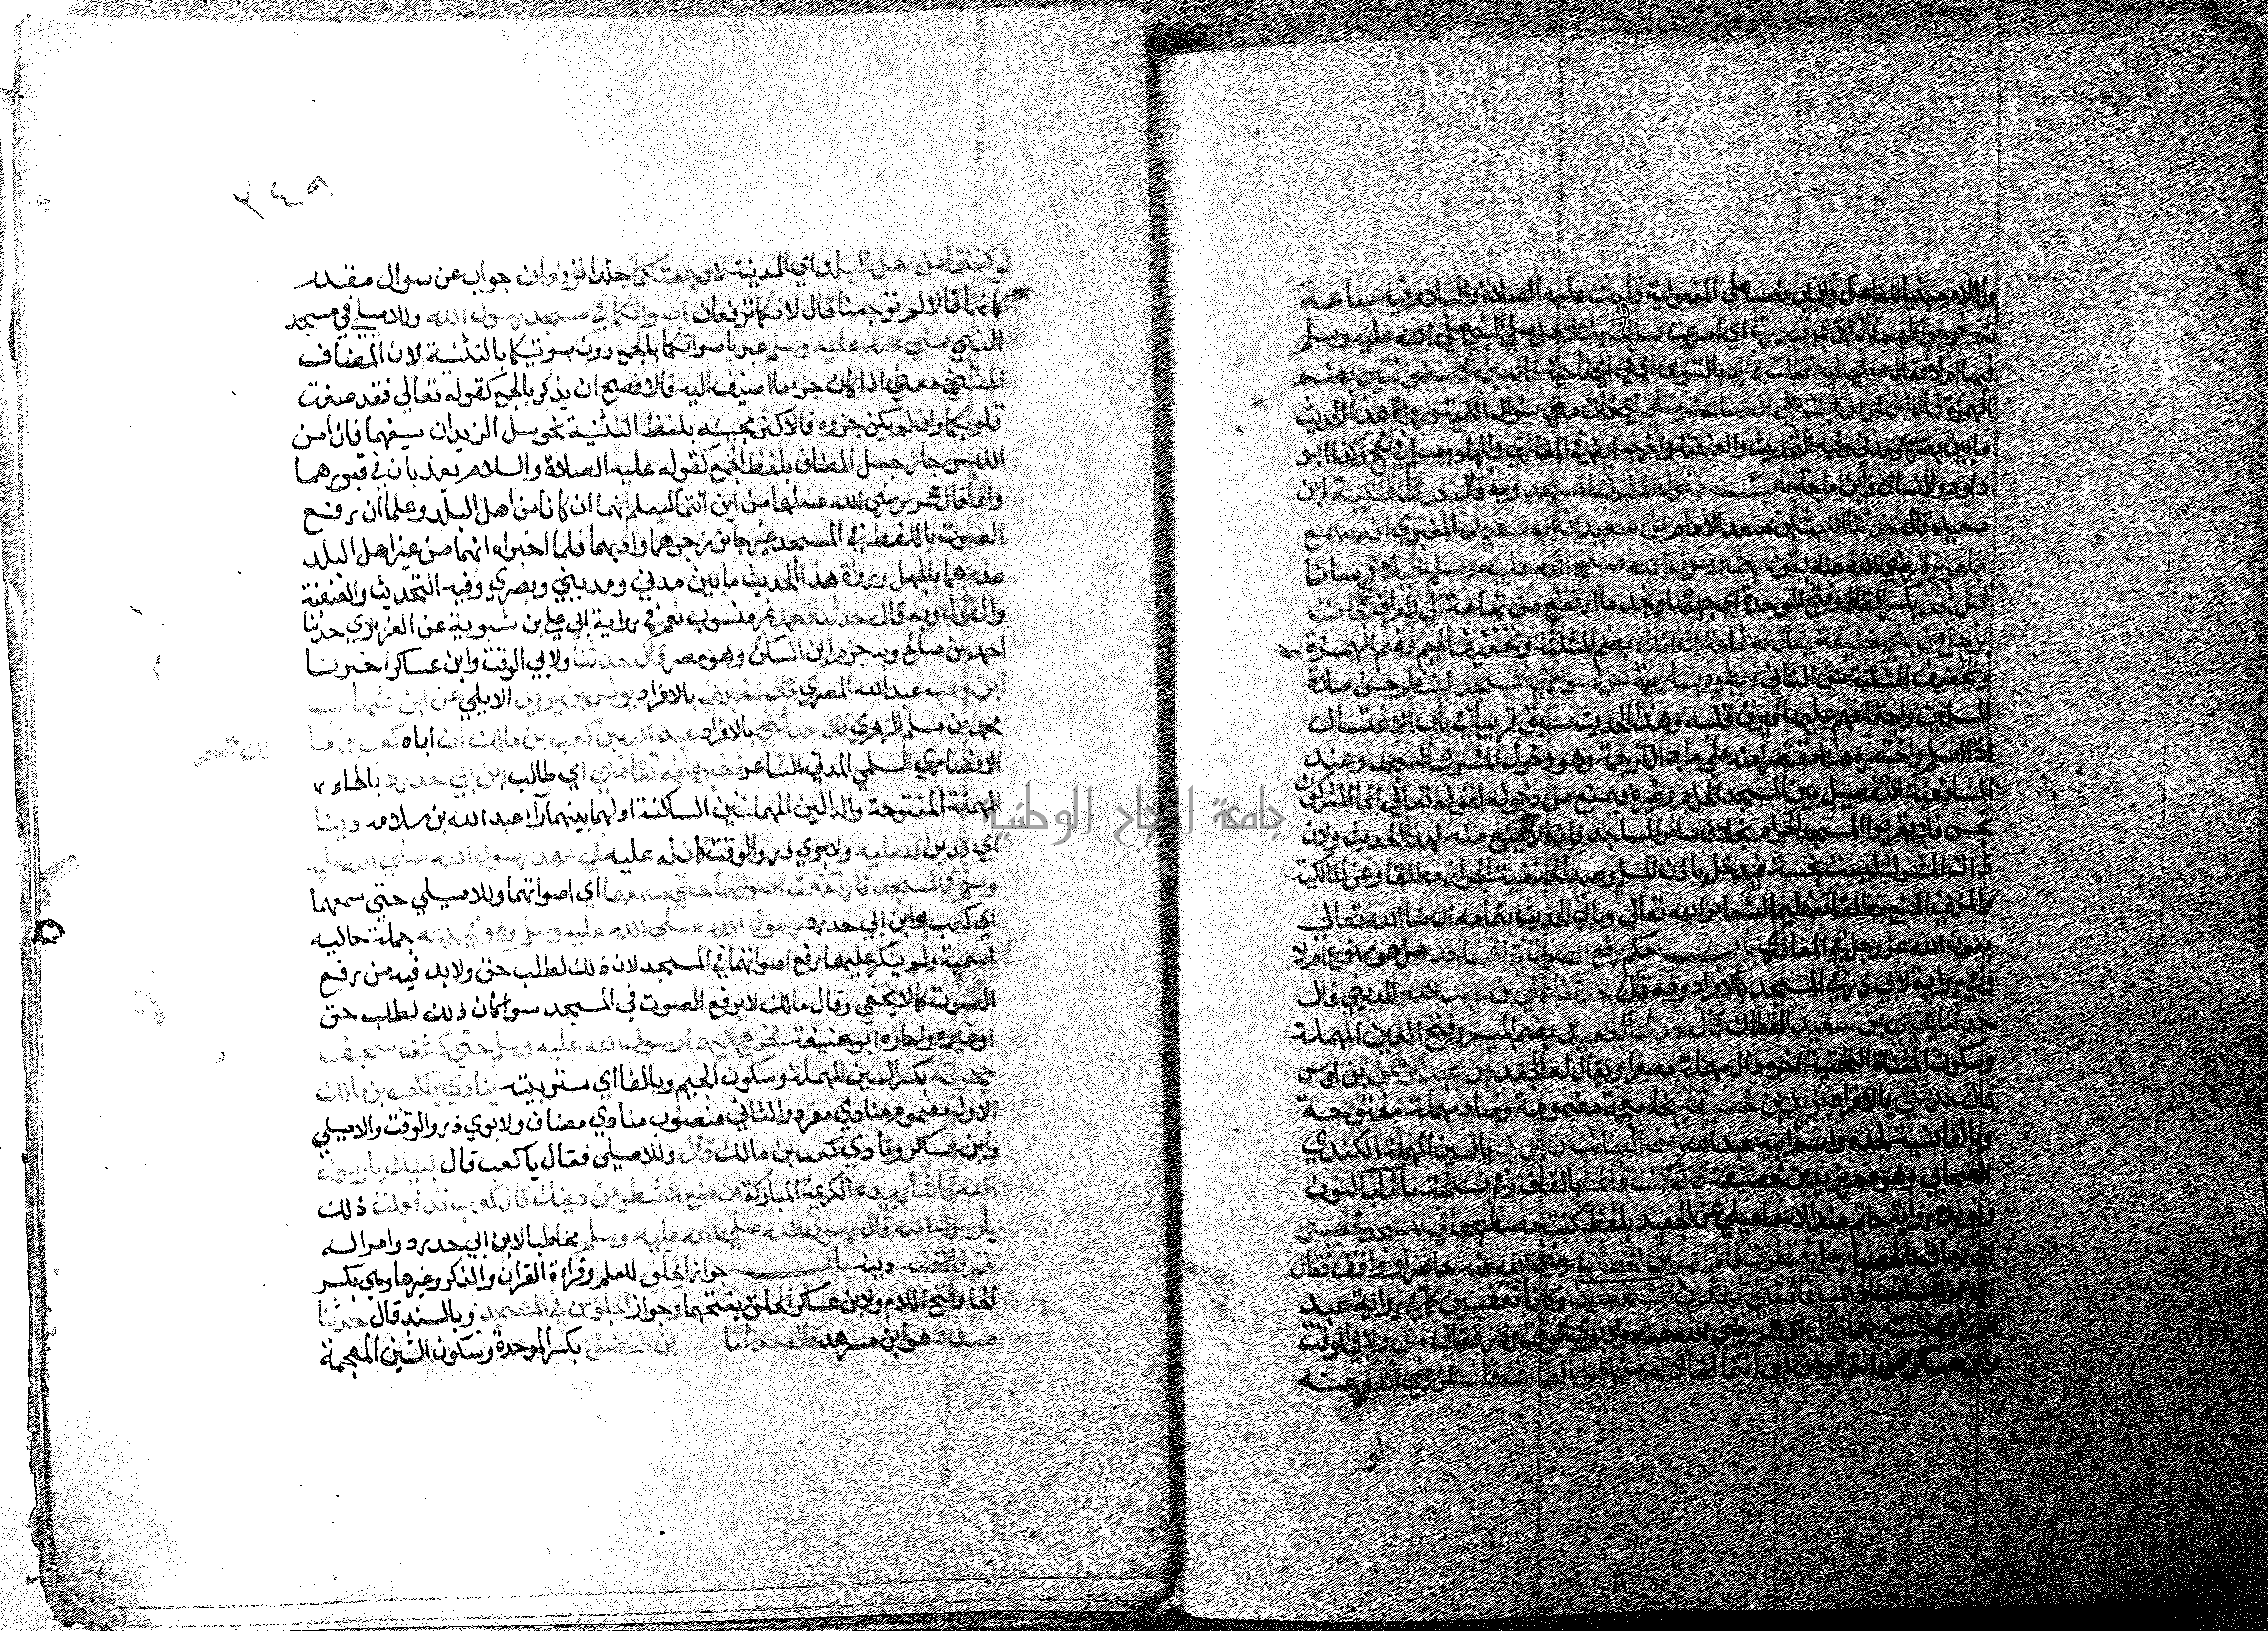 واللام مبنيا للفاعل والباب نصب علي المفعولية فلبث عليه الصلاة والسلام فيه ساعة
ثم خرجوا كلهم قال ابن عمر فبدرت اي اسرعت فسالت بلالا هل صلي النبي صلي الله عليه وسلم
فيها ام لا فقال صلي فيه فقلت في اي بالتنوين اي في اي ناحية قال بين الاسطوانتين بضم
الهمزة قال ابن عمر فذهبت علي ان اساله كم صلي اي فات مني سؤال الكمية ورواة هذا الحديث
ما بين بصري ومدني وفيه التحديث والعنعنة واخرجه ايضا في المغازي والجهاد ومسلم في الحج وكذا ابو
داود والنساي وابن ماجة باب دخول المشرك المسجد وبه قال حدثنا قتيبة ابن
سعيد قال حدثنا الليث بن سعد الامام عن سعيد بن ابي سعيد المقبري انه سمع
ابا هريرة رضي الله عنه يقول بعث رسول الله صلي الله عليه وسلم خيلا فرسانا
قبل نجد بكسر القاف وفتح الموحدة اي جهتها ونجد ما ارتفع من تهامة الي العراق فجات
برجل من بني حنيفة يقال له ثمامة بن اثال بضم المثلثة وتخفيف الميم وضم الهمزة
وتخفيف المثلثة من الثاني فربطوه بسارية من سواري المسجد لينظر حسن صلاة
المسلمين واجتماعهم عليها فيرق قلبه وهذا الحديث سبق قريبا في باب الاغتسال
اذا اسلم واختصره هنا مقتصرا منه علي مراد الترجمة وهو دخول المشرك المسجد وعند
الشافعية التفصيل بين المسجد الحرام وغيره فيمنع من دخوله لقوله تعالي انما المشركون
نجس فلا يقربوا المسجد الحرام بخلاف سائر المساجد فانه لا يمنع منه لهذا الحديث ولان
ذات المشرك ليست بنجسة فيدخل باذن المسلم وعند الحنفية الجواز مطلقا وعن المالكية
والمزني المنع مطلقا تعظيما لشعائر الله تعالي وياتي الحديث بتمامه ان شا الله تعالي
بعون الله عز وجل في المغازي باب حكم رفع الصوت في المساجد هل هو ممنوع ام لا
وفي رواية لابي ذر في المسجد بالافراد وبه قال حدثنا علي بن عبد الله المديني قال
حدثنا يحيي بن سعيد القطان قال حدثنا الجعيد بضم الجيم وفتح العين المهملة
وسكون المثناة التحتية اخره دال مهملة مصغرا ويقال له الجعد ابن عبد الرحمن بن اوس
قال حدثني بالافراد يزيد بن خصيفة بخاء معجمة مضمومة وصاد مهملة مفتوحة
وبالفا نسبة لجده واسم ابيه عبد الله عن السائب بن يزيد بالسين المهملة الكندي
الصحابي وهو عم يزيد بن خصيفة قال كنت قائما بالقاف وفي نسخة نائما بالنون
ويويده رواية حاتم عند الاسماعيلي عن الجعيد بلفظ كنت مضطجعا في المسجد فحصبني
اي رماني بالحصبا رجل فنظرت فاذا عمر بن الخطاب رضي الله عنه حاضر او واقف فقال
اي عمر للسائب اذهب فاتني بهذين الشخصين وكانا ثقفيين كما في رواية عبد
الرزاق فجئته بهما قال اي عمر رضي الله عنه ولابوي الوقت وذر فقال من ولابي الوقت
وابن عساكر ممن انتما او من اين انتما فقالا له من اهل الطائف قال عمر رضي الله عنه
لو
لو كنتما من اهل البلد اي المدينة لاوجعتكما جلدا ترفعان جواب عن سوال مقدر
كانهما قالا لم توجعنا قال لانكما ترفعان اصواتكما في مسجد رسول الله وللاصيلي في مسجد
النبي صلي الله عليه وسلم عبر باصواتكما بالجمع دون صوتيكما بالتثنية لان المضاف
المثني معني اذا كان جزء ما اضيف اليه فالافصح ان يذكر بالجمع كقوله تعالي فقد صغت
قلوبكما وان لم يكن جزوه فالاكثر مجيئه بلفظ التثنية نحو سل الزيدان سيفهما فان امن
اللبس جاز جعل المضاف بلفظ الجمع كقوله عليه الصلاة والسلام يعذبان في قبورهما
وانما قال عمر رضي الله عنه لهما من اين انتما ليعلم انهما ان كانا من اهل البلد وعلما ان رفع
الصوت باللفظ في المسجد غير جائز زجرهما وادبهما فلما اخبراه انهما من غير اهل البلد
عذرهما بالجهل ورواة هذا الحديث ما بين مدني ومديني وبصري وفيه التحديث والعنعنة
والقول وبه قال حدثنا احمد غير منسوب نعم في رواية ابي علي بن شبوية عن الفربري حدثنا
احمد بن صالح وبه جزم ابن السكن وهو مصر قال حدثنا ولابي الوقت وابن عساكر اخبرنا
ابن وهب عبد الله المصري قال اخبرني بالافراد يونس بن يزيد الايلي عن ابن شهاب
محمد بن مسلم الزهري قال حدثني بالافراد عبد الله بن كعب بن مالك ان اباه كعب بن ما
الانصاري السلمي المدني الشاعر اخبره انه تقاضي اي طالب ابن ابي حدرد بالحاء
المهملة المفتوحة والدالين المهملتين الساكنة اولهما بينهما را عبد الله بن سلامه دينا
اي بدين له عليه ولابوي ذر والوقت كان له عليه في عهد رسول الله صلي الله عليه
وسلم في المسجد فارتفعت اصواتهما حتي سمعهما اي اصواتهما وللاصيلي حتي سمعهما
اي كعب وابن ابي حدرد رسول الله صلي الله عليه وسلم وهو في بيته جملة حالية
اسمية ولم ينكر عليهما رفع اصواتهما في المسجد لان ذلك لطلب حق ولابد فيه من رفع
الصوت كما لا يخفي وقال مالك لا يرفع الصوت في المسجد سوا كان ذلك لطلب حق
او غيره واجازه ابو حنيفة فخرج اليهما رسول الله عليه وسلم حتي كشف سجف
حجرته بكسر السين المهملة وسكون الجيم وبالفا اي ستر بيته ينادي يا كعب بن مالك
الاول مضموم منادي مفرد والثاني منصوب منادي مضاف ولابوي ذر والوقت والاصيلي
وابن عساكر ونادي كعب بن مالك قال وللاصيلي فقال يا كعب قال لبيك يا رسول
الله فاشار بيده الكريمة المباركة ان ضع الشطر من دينك قال كعب قد فعلت ذلك
يا رسول الله قال رسول الله صلي الله عليه وسلم مخاطبا لابن ابي حدرد وامرا له
قم فاقضه دينه باب جواز الحلق للعلم وقراءة القران والذكر وغيرها وهي بكسر
الحا وفتح اللام ولابن عساكر الحلق بفتحهما وجواز الجلوس في المسجد وبالسند قال حدثنا
مسدد هو ابن مسرهد قال حدثنا بن الفضل بكسر الموحدة وسكون الشين المعجمة
جامعة النجاح الوطنية